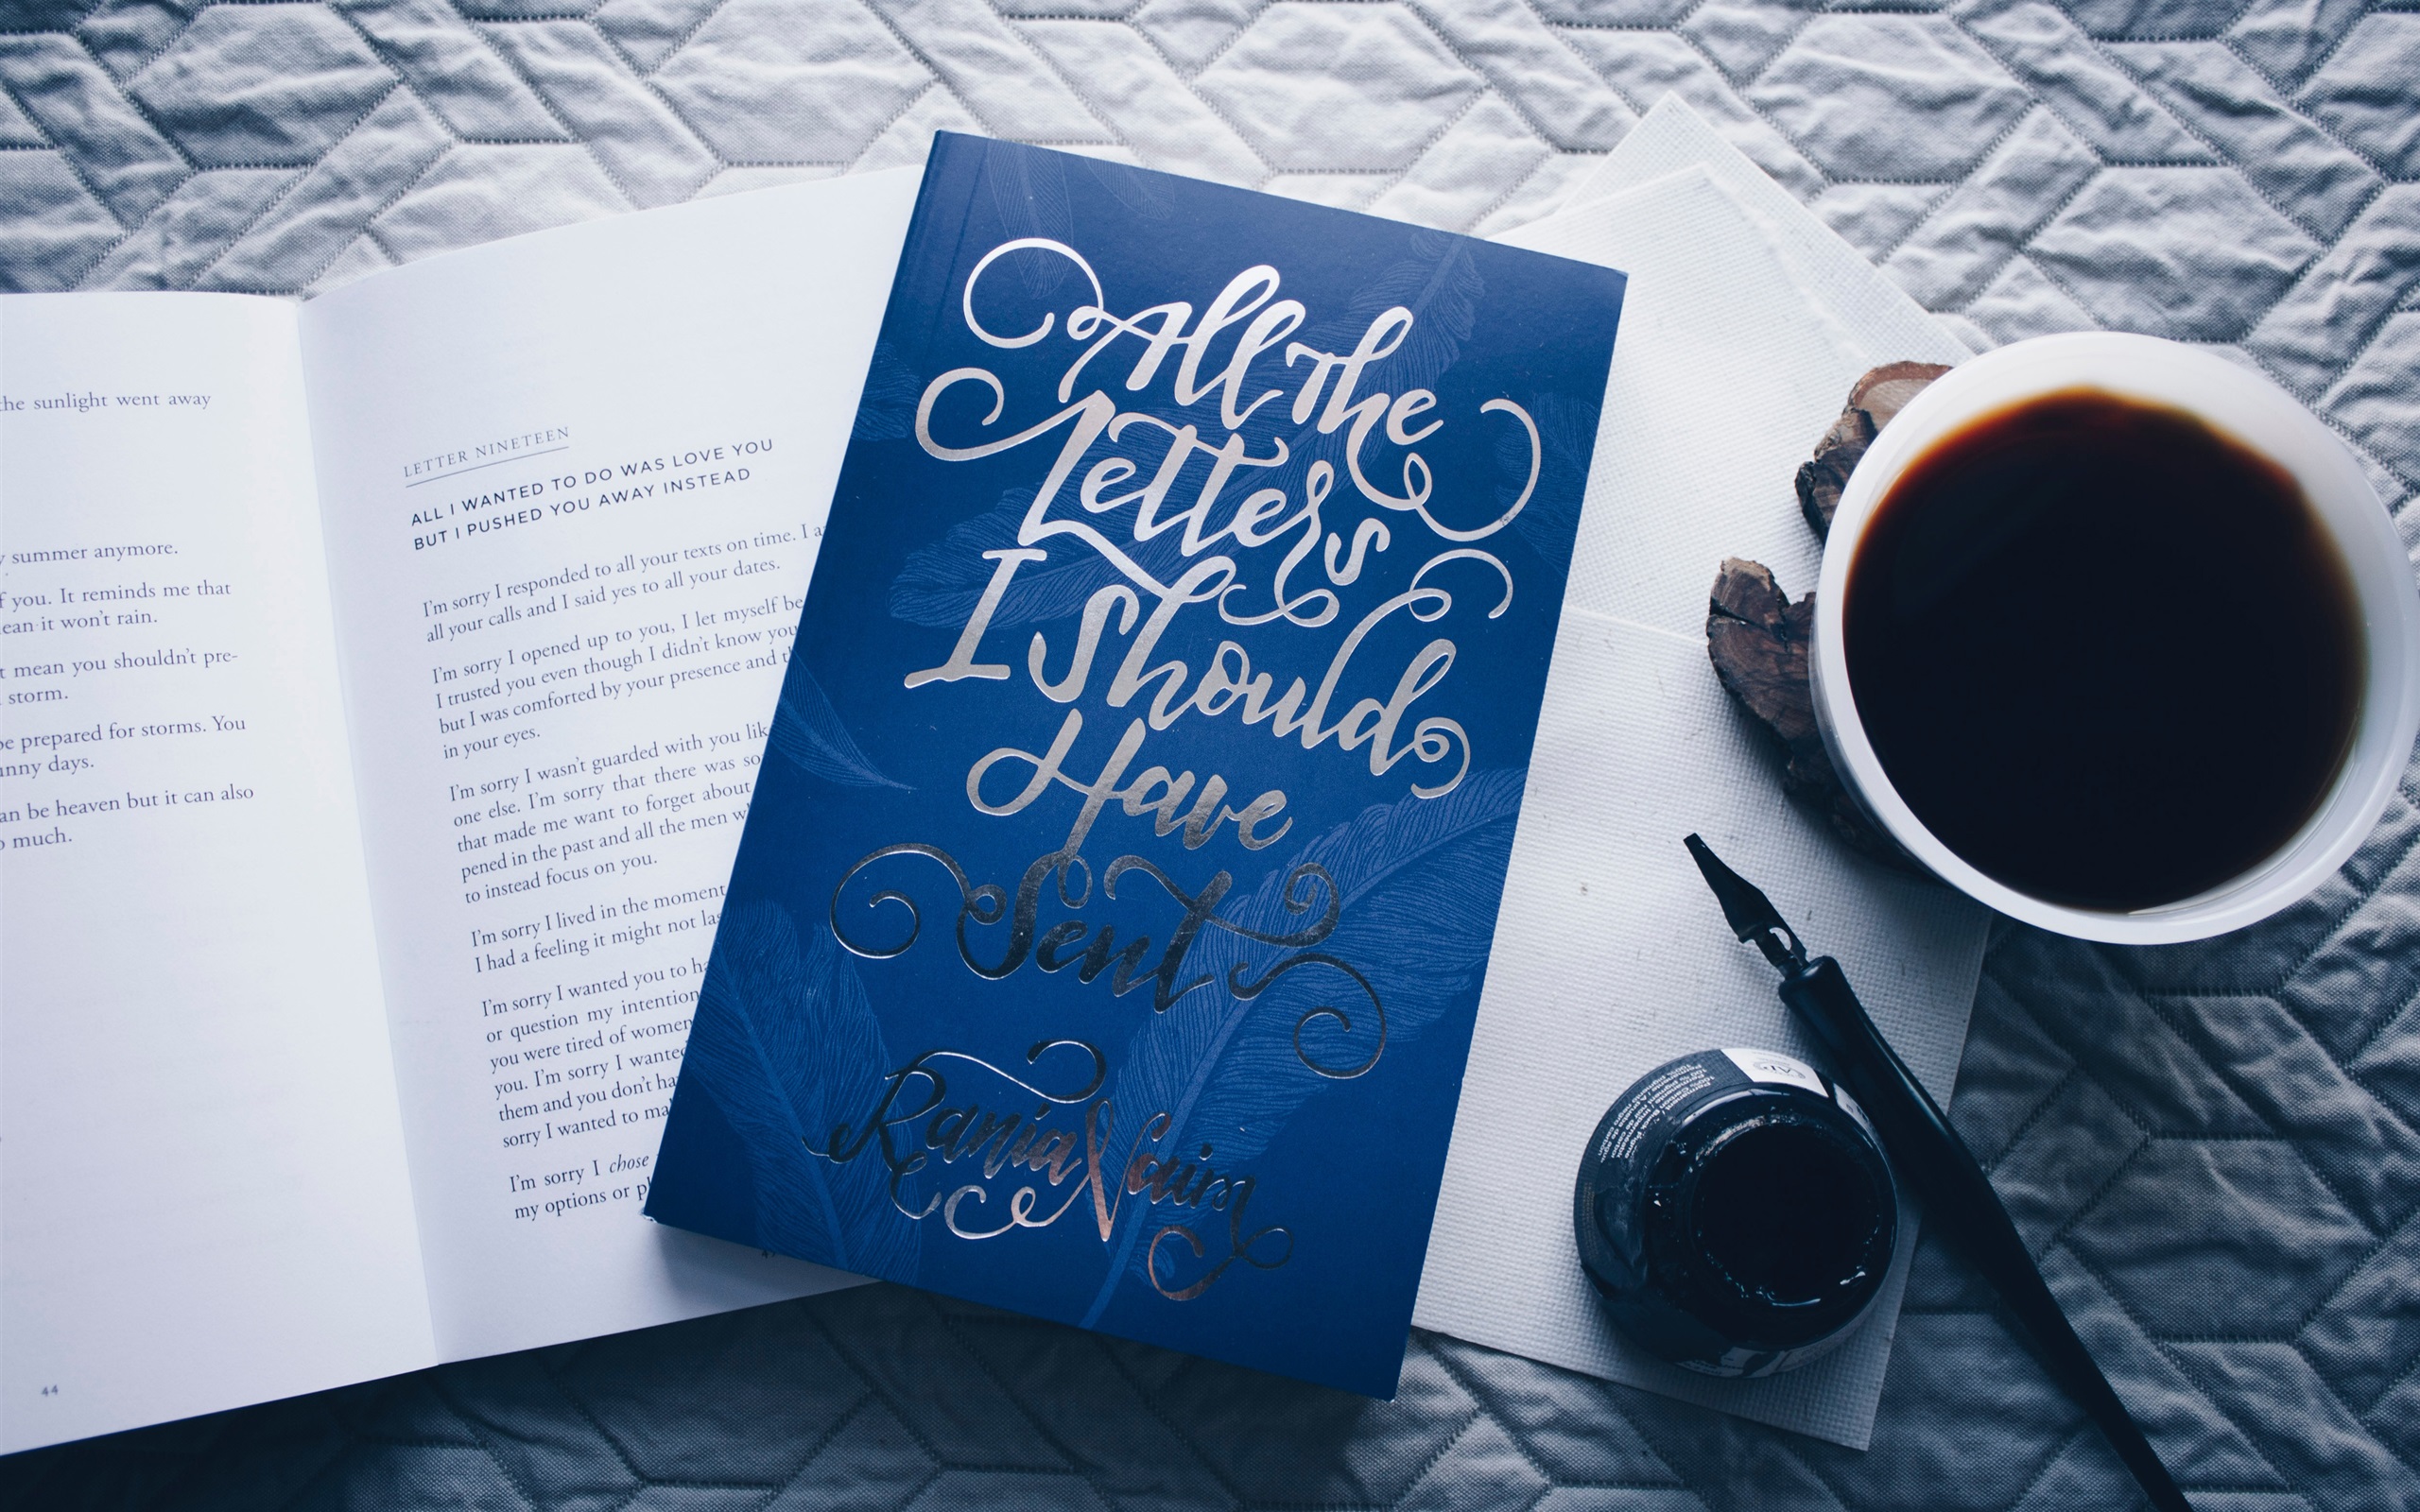 the sunlight went away
summer anymore.
you. It reminds me that
it won't rain.
mean you shouldn't pre-
storm.
prepared for storms. You
days.
be heaven but it can also
much.
44
LETTER NINETEEN
ALL I WANTED TO DO WAS LOVE YOU
BUT I PUSHED YOU AWAY INSTEAD
I'm sorry I responded to all your texts on time. I
all your calls and I said yes to all your dates.
I'm sorry I opened up to you, I let myself be
I trusted you even though I didn't know you
but I was comforted by your presence and
in your eyes.
I'm sorry I wasn't guarded with you
one else. I'm sorry that there was
that made me want to forget about
pened in the past and all the men
to instead focus on you.
I'm sorry I lived in the moment
I had a feeling it might not
I'm sorry I wanted you to
or question my intention
you were tired of women
you. I'm sorry I wanted
them and you don't
sorry I wanted to
I'm sorry I chose
my options or
All The
Letters
I Should
Have
Sent
Rania Naim